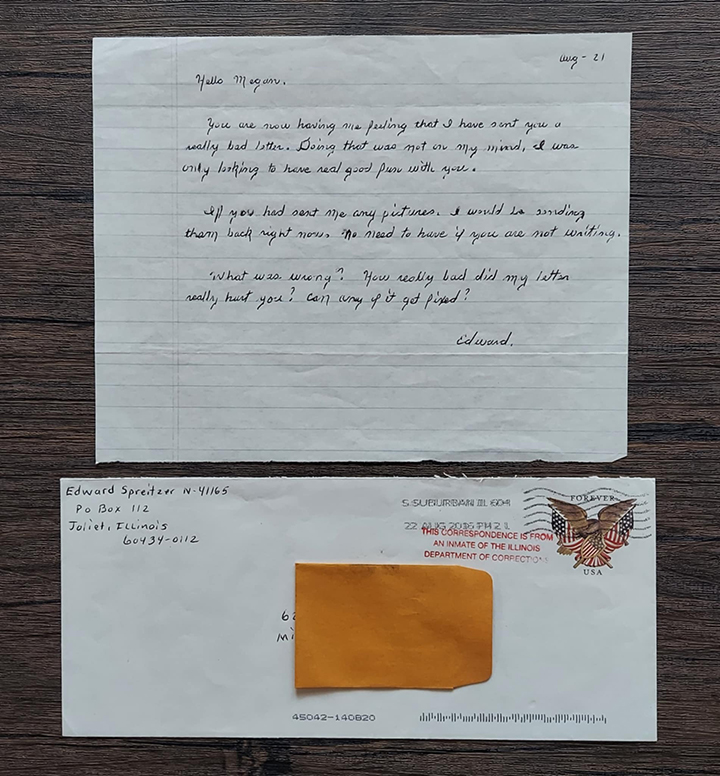 Aug - 21
Hello Megan.
You are now having me feeling that I have sent you a
really bad letter. Doing that was not on my mind, I was
only looking to have real good fun with you.
If you had sent me any pictures. I would be sending
them back right now. No need to have if you are not writing.
What was wrong? How really bad did my letter
really hurt you? Can any of it get fixed?
Edward.
Edward Spreitzer N-41165
Po Box 112
Joliet, Illinois
60434-0112
S SUBURBAN IL 604
22 AUG 2016 PM 2 L
THIS CORRESPONDENCE IS FROM
AN INMATE OF THE ILLINOIS
DEPARTMENT OF CORRECTIONS
FOREVER
USA
45042-140820